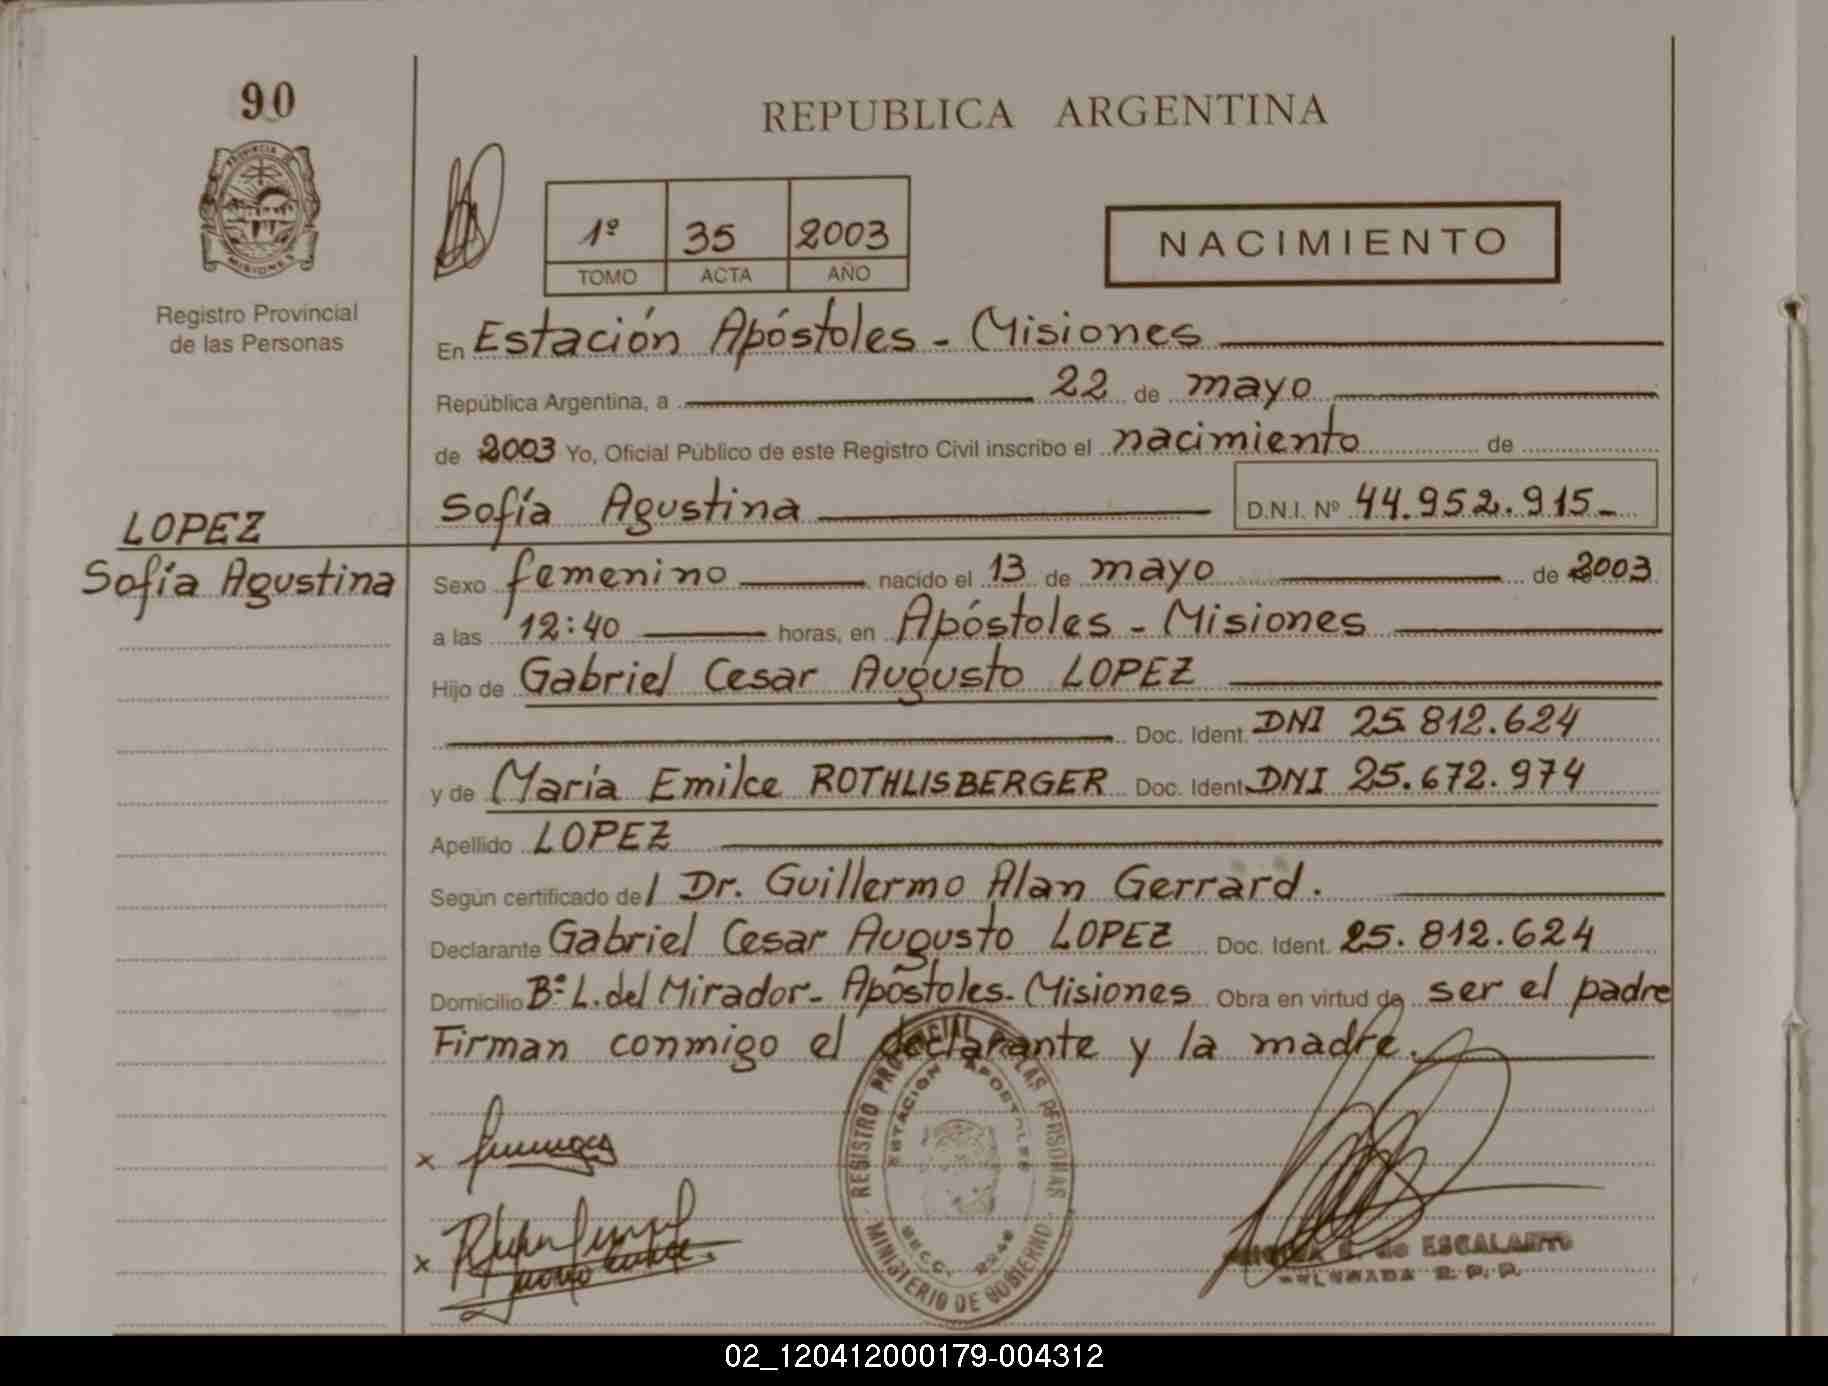 90
REPUBLICA ARGENTINA
PROVINCIA DE
MISIONES
1º 35 2003
TOMO ACTA AÑO
NACIMIENTO
Registro Provincial
de las Personas
En Estación Apóstoles - Misiones
República Argentina, a 22 de mayo
de 2003 Yo, Oficial Público de este Registro Civil inscribo el nacimiento de
Sofía Agustina D.N.I. Nº 44.952.915-
LOPEZ
Sofía Agustina
Sexo femenino nacido el 13 de mayo de 2003
a las 12:40 horas, en Apóstoles - Misiones
Hijo de Gabriel Cesar Augusto LOPEZ
Doc. Ident. DNI 25.812.624
y de María Emilce ROTHLISBERGER Doc. Ident. DNI 25.672.974
Apellido LOPEZ
Según certificado de/ Dr. Guillermo Alan Gerrard.
Declarante Gabriel Cesar Augusto LOPEZ Doc. Ident. 25.812.624
Domicilio Bº L. del Mirador - Apóstoles - Misiones Obra en virtud de ser el padre
Firman conmigo el declarante y la madre.
REGISTRO PROVINCIAL DE LAS PERSONAS
ESTACION APOSTOLES
MINISTERIO DE GOBIERNO
x
x
de ESCALANTE
R. P. P.
02_120412000179-004312